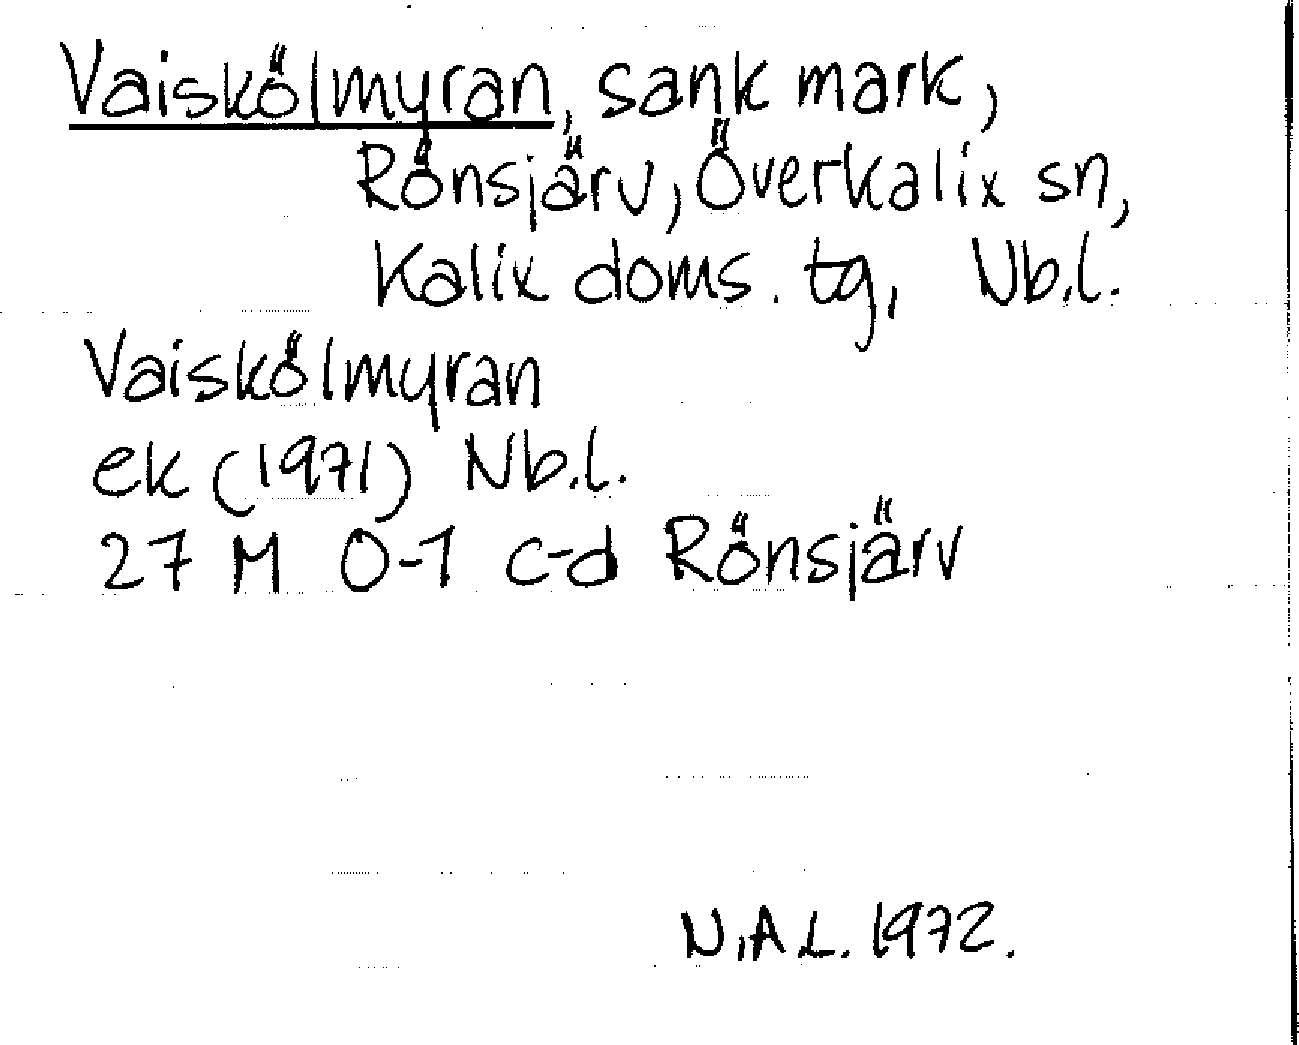 Vaiskölmyran, sank mark,
Rönsjärv, Överkalix sn,
Kalix doms. tg, Nb.l.
Vaiskölmyran
ek (1971) Nb.l.
27 M 0-1 c-d Rönsjärv
N.A.L. 1972.